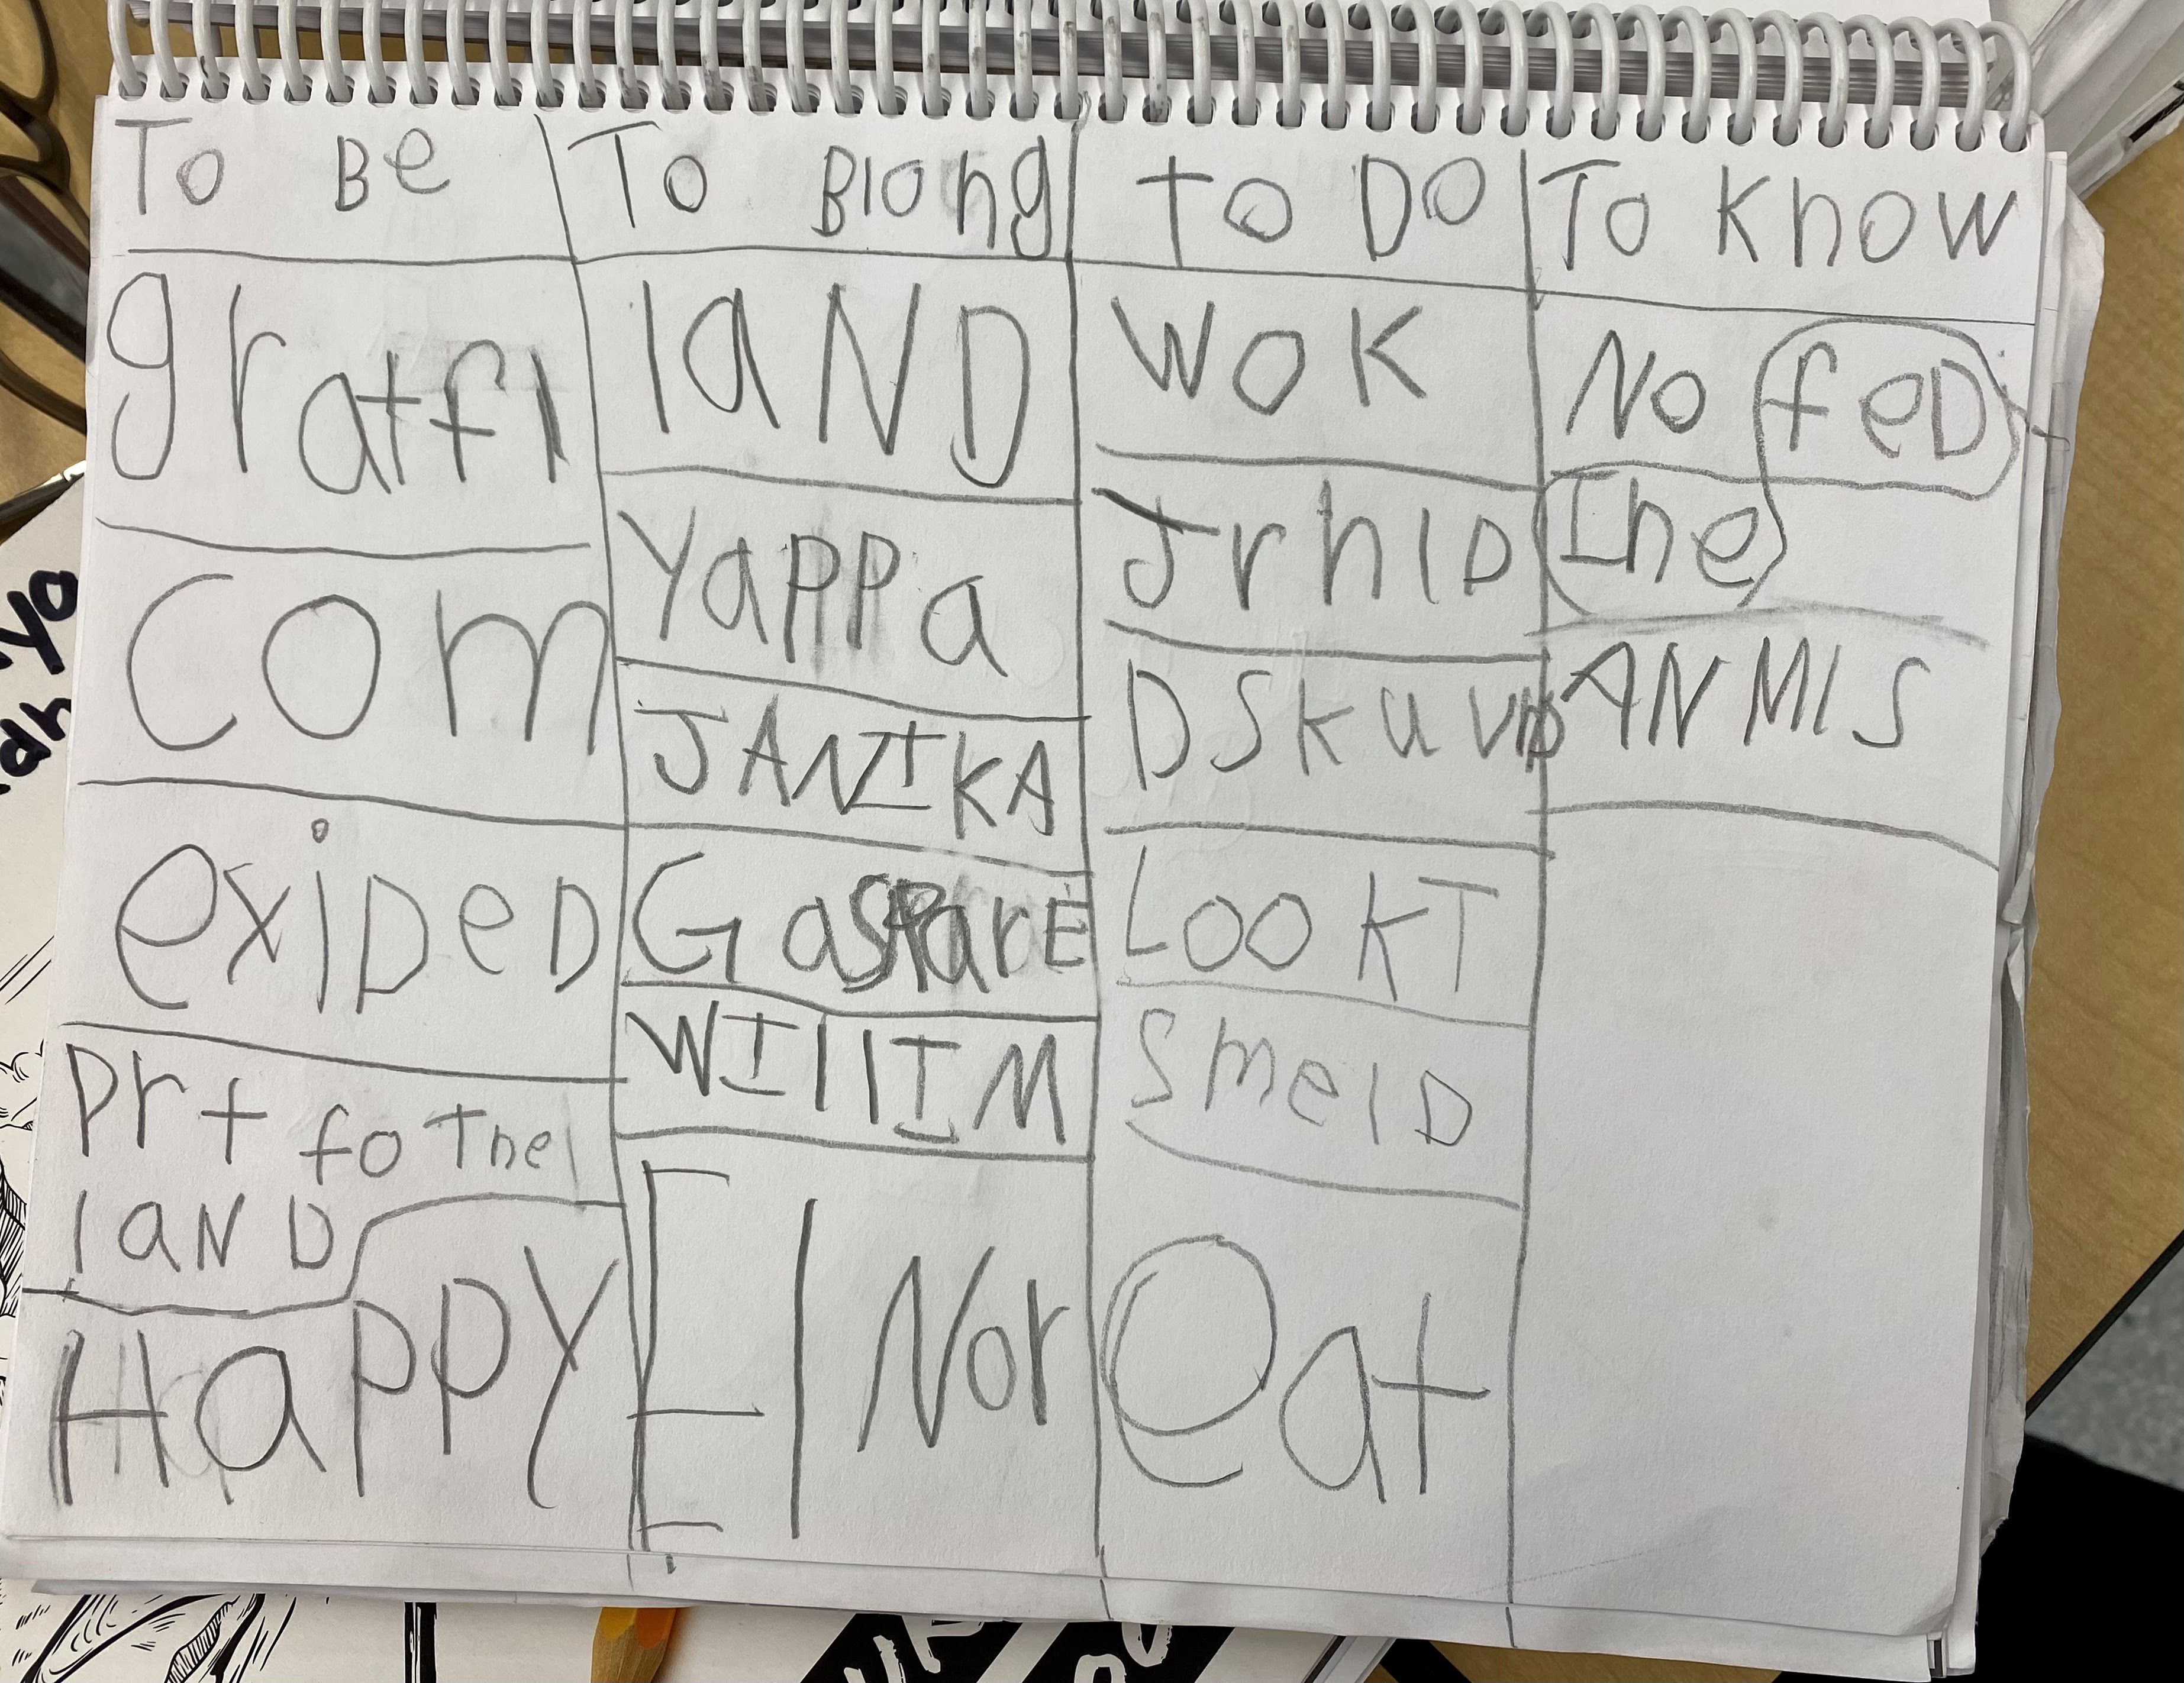 To Be
gratfl
com
exiDeD
Prt fo The
laND
HaPPY
To Blong
laND
YaPPa
JANIKA
GasparE
WIllIM
ElNor
To DO
WOK
JrhlD
DSKuvD
LOOKT
SmelD
eat
To Know
No feD
Ine
ANMlS